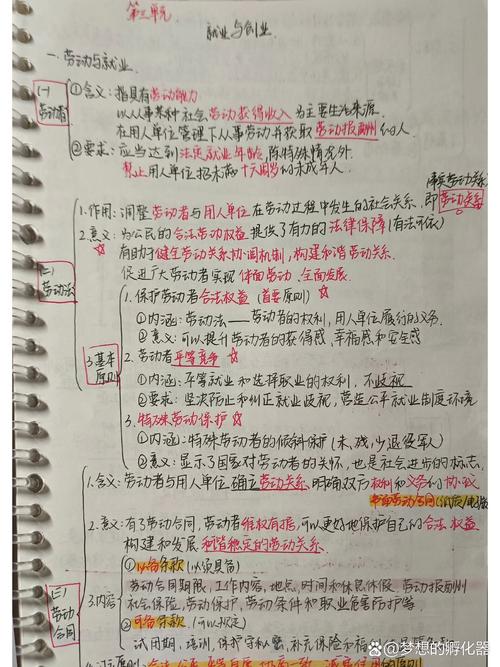 第三单元
就业与创业
一.劳动与就业
(一)劳动者
①含义:指具有劳动能力
以从事某种社会劳动获得收入为主要生活来源
在用人单位管理下从事劳动并获取劳动报酬的人.
②要求:应当达到法定就业年龄,除特殊情况外.
禁止用人单位招未满十六周岁的未成年人.
(二)劳动法
劳动关系
1.作用:调整劳动者与用人单位在劳动过程中发生的社会关系,即劳动关系
2.意义:为公民的合法劳动权益提供了有力的法律保障(有法可依)
有助于健全劳动关系协调机制,构建和谐劳动关系.
促进广大劳动者实现体面劳动、全面发展.
3.基本原则
1.保护劳动者合法权益(首要原则)☆
①内涵:劳动法——劳动者的权利,用人单位履行的义务.
②意义:可以提升劳动者的获得感,幸福感和安全感
2.劳动者平等竞争☆
①内涵:平等就业和选择职业的权利,不歧视
②要求:坚决防止和纠正就业歧视,营造公平就业制度环境
3.特殊劳动保护☆
①内涵:特殊劳动者的倾斜保护(未,残,少,退役军人)
②意义:显示了国家对劳动者的关怀,也是社会进步的标志.
(三)劳动合同
1.含义:劳动者与用人单位确立劳动关系,明确双方权利和义务的协议
书面劳动合同
2.意义:有了劳动合同,劳动者维权有据,可以更好地保护自己的合法权益
构建和发展和谐稳定的劳动关系.
3.内容
①必备条款(必须具备)
劳动合同期限,工作内容,地点,时间和休息休假,劳动报酬
社会保险,劳动保护,劳动条件和职业危害防护等.
②可备条款(可以约定)
试用期,培训,保守秘密,补充保险和福利
@梦想的孵化器